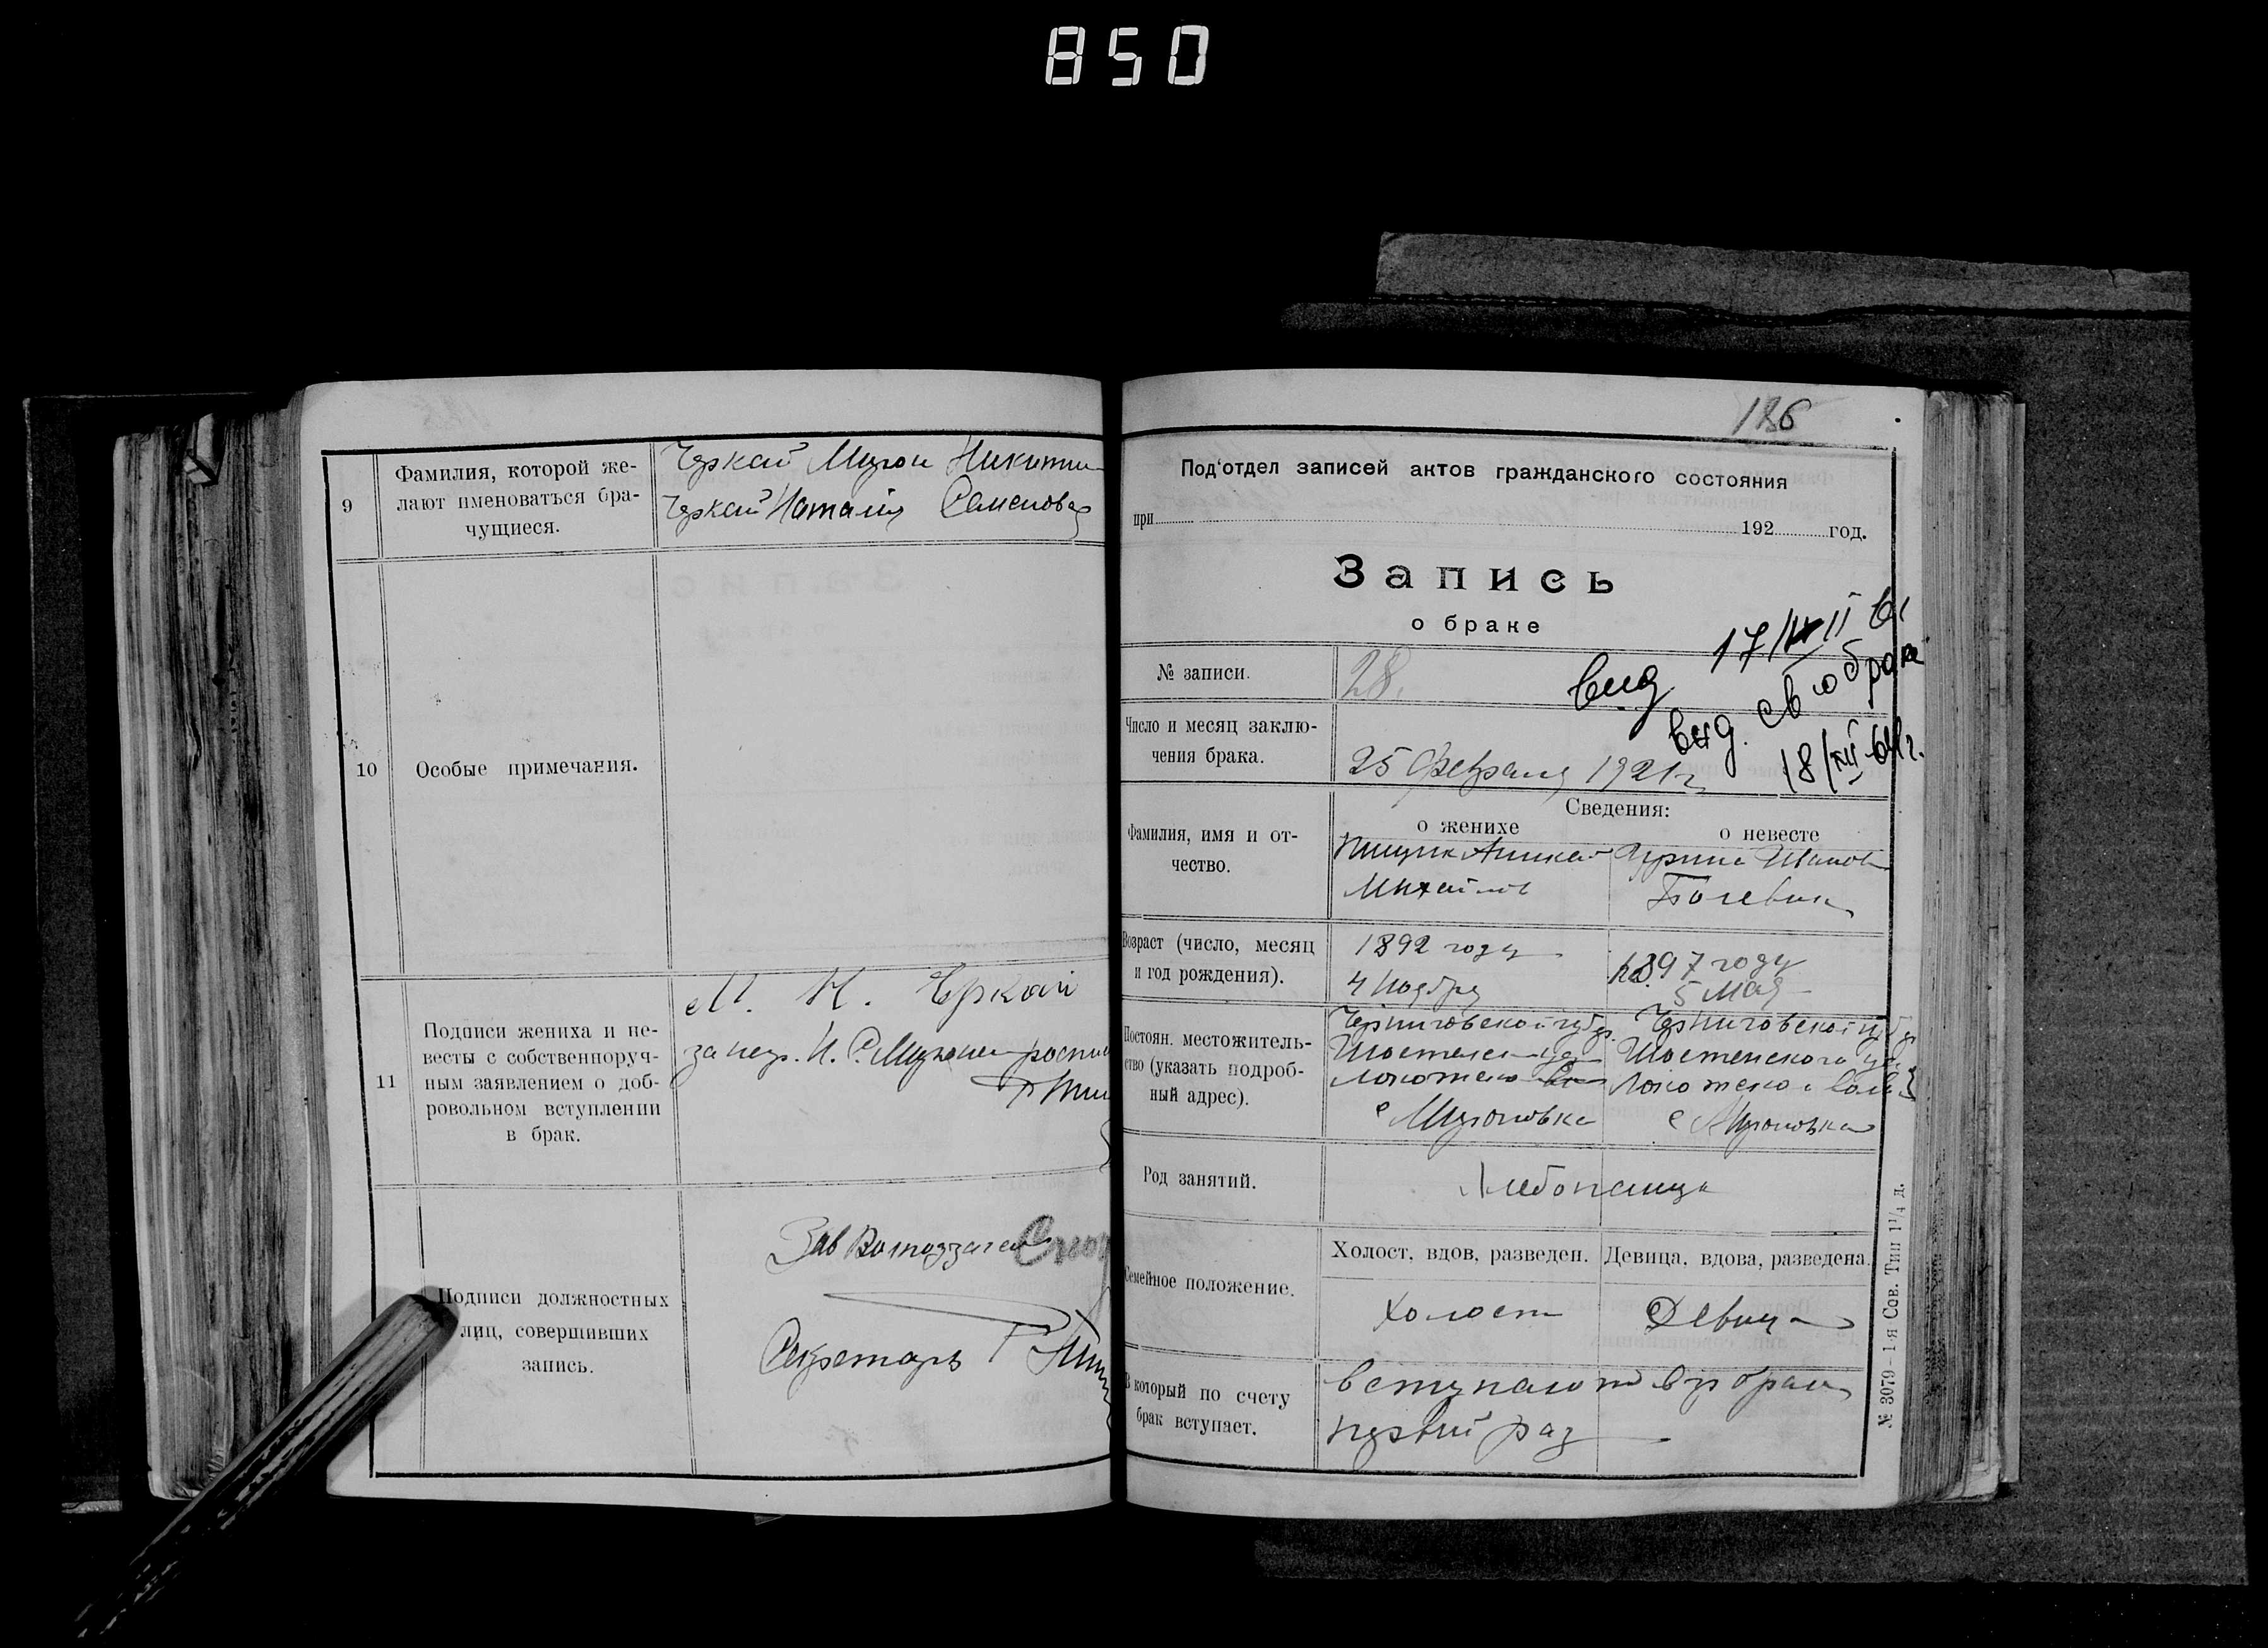 850
9
Фамилия, которой же-
лают именоваться бра-
чущиеся.
Черкай Мирон Никитин
Черкай Наталия Семенова
10
Особые примечания.
11
Подписи жениха и не-
весты с собственноруч-
ным заявлением о доб-
ровольном вступлении
в брак.
М. Н. Черкай
за негр. Н. С.
Подписи должностных
лиц, совершивших
запись.
Зав
Секретарь
186
Под'отдел записей актов гражданского состояния
при 192 год.
Запись
о браке
№ записи.
28.
17/II 61
выд
выд. св о браке
18/XII-61г.
Число и месяц заклю-
чения брака.
25 февраля 1921 г.
Сведения:
о женихе
о невесте
Фамилия, имя и от-
чество.
Михайлов
Иванов
Возраст (число, месяц
и год рождения).
1892 году
4 Ноября
1897 году
5 Мая
Постоян. местожитель-
ство (указать подроб-
ный адрес).
Черниговской губ
Шостенск уез
с Мироновка
Черниговской губ
Шостенского уез
с Мироновка
Род занятий.
Хлебопашцы
Семейное положение.
Холост, вдов, разведен.
Девица, вдова, разведена.
Холост
Девица
В который по счету
брак вступает.
вступают в брак
первый раз
№ 3079 - 1-я Сов. Тип 1¼ д.